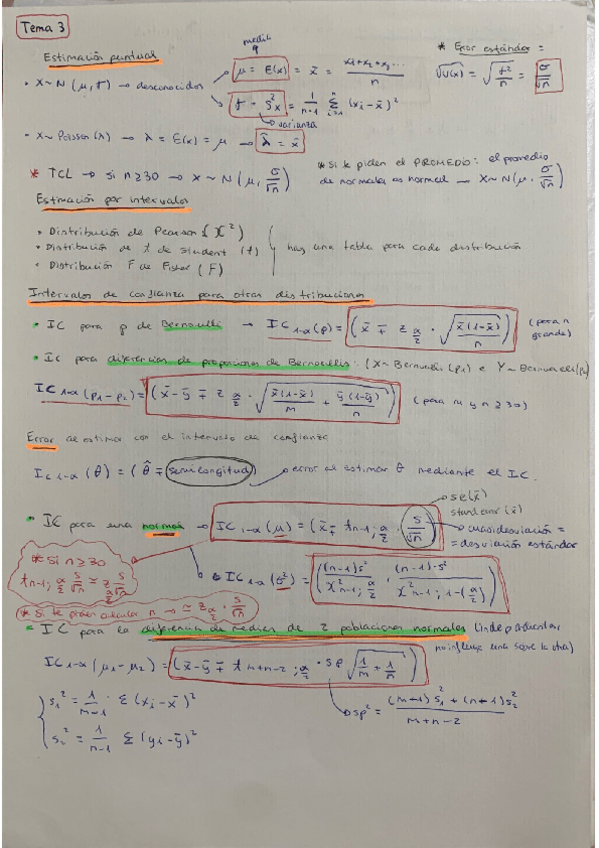 Tema 3
Estimación puntual
media
* Error estándar =
• X ~ N(μ, σ) → desconocidos
μ = E(x) = x̄ = (x₁+x₂+x₃...)/n
√V(x̄) = √(σ²/n) = σ/√n
σ = S²ₓ = 1/(n-1) Σ (xᵢ-x̄)²
↳ varianza
• X ~ Poisson(λ) → λ = E(x) = μ → λ̂ = x̄
* TCL → si n ≥ 30 → X ~ N(μ, σ/√n)
* Si te piden el PROMEDIO: el promedio
de normales es normal → X ~ N(μ, σ/√n)
Estimación por intervalos
• Distribución de Pearson (X²)
• Distribución de t de Student (t)
• Distribución F de Fisher (F)
hay una tabla para cada distribución
Intervalos de confianza para otras distribuciones
• IC para p de Bernoulli → IC 1-α (p) = (x̄ ∓ z α/2 · √(x̄(1-x̄)/n)) (para n grande)
• IC para diferencia de proporciones de Bernoullis: (X ~ Bernoulli (p₁) e Y ~ Bernoulli (p₂)
IC 1-α (p₁-p₂) = (x̄-ȳ ∓ z α/2 · √(x̄(1-x̄)/m + ȳ(1-ȳ)/n)) (para m y n ≥ 30)
Error al estimar con el intervalo de confianza
IC 1-α (θ) = (θ̂ ∓ semilongitud) → error al estimar θ mediante el IC.
se(x̄)
standard error (x̄)
• IC para una normal → IC 1-α (μ) = (x̄ ∓ t n-1; α/2 · S/√n)
→ cuasidesviación =
= desviación estándar
* Si n ≥ 30
t n-1; α/2 S/√n ≃ z α/2 S/√n
IC 1-α (σ²) = ((n-1)s²/X² n-1; α/2 , (n-1)·s²/X² n-1; 1-(α/2))
* Si te piden calcular n → ≃ z α/2 · S/√n
• IC para la diferencia de medias de 2 poblaciones normales (independientes,
no influye una sobre la otra)
IC 1-α (μ₁-μ₂) = (x̄-ȳ ∓ t m+n-2; α/2 · sp √(1/m + 1/n))
s₁² = 1/(m-1) Σ (xᵢ-x̄)²
→ sp² = ((m+1)s₁² + (n+1)s₂²)/(m+n-2)
s₂² = 1/(n-1) Σ (yᵢ-ȳ)²